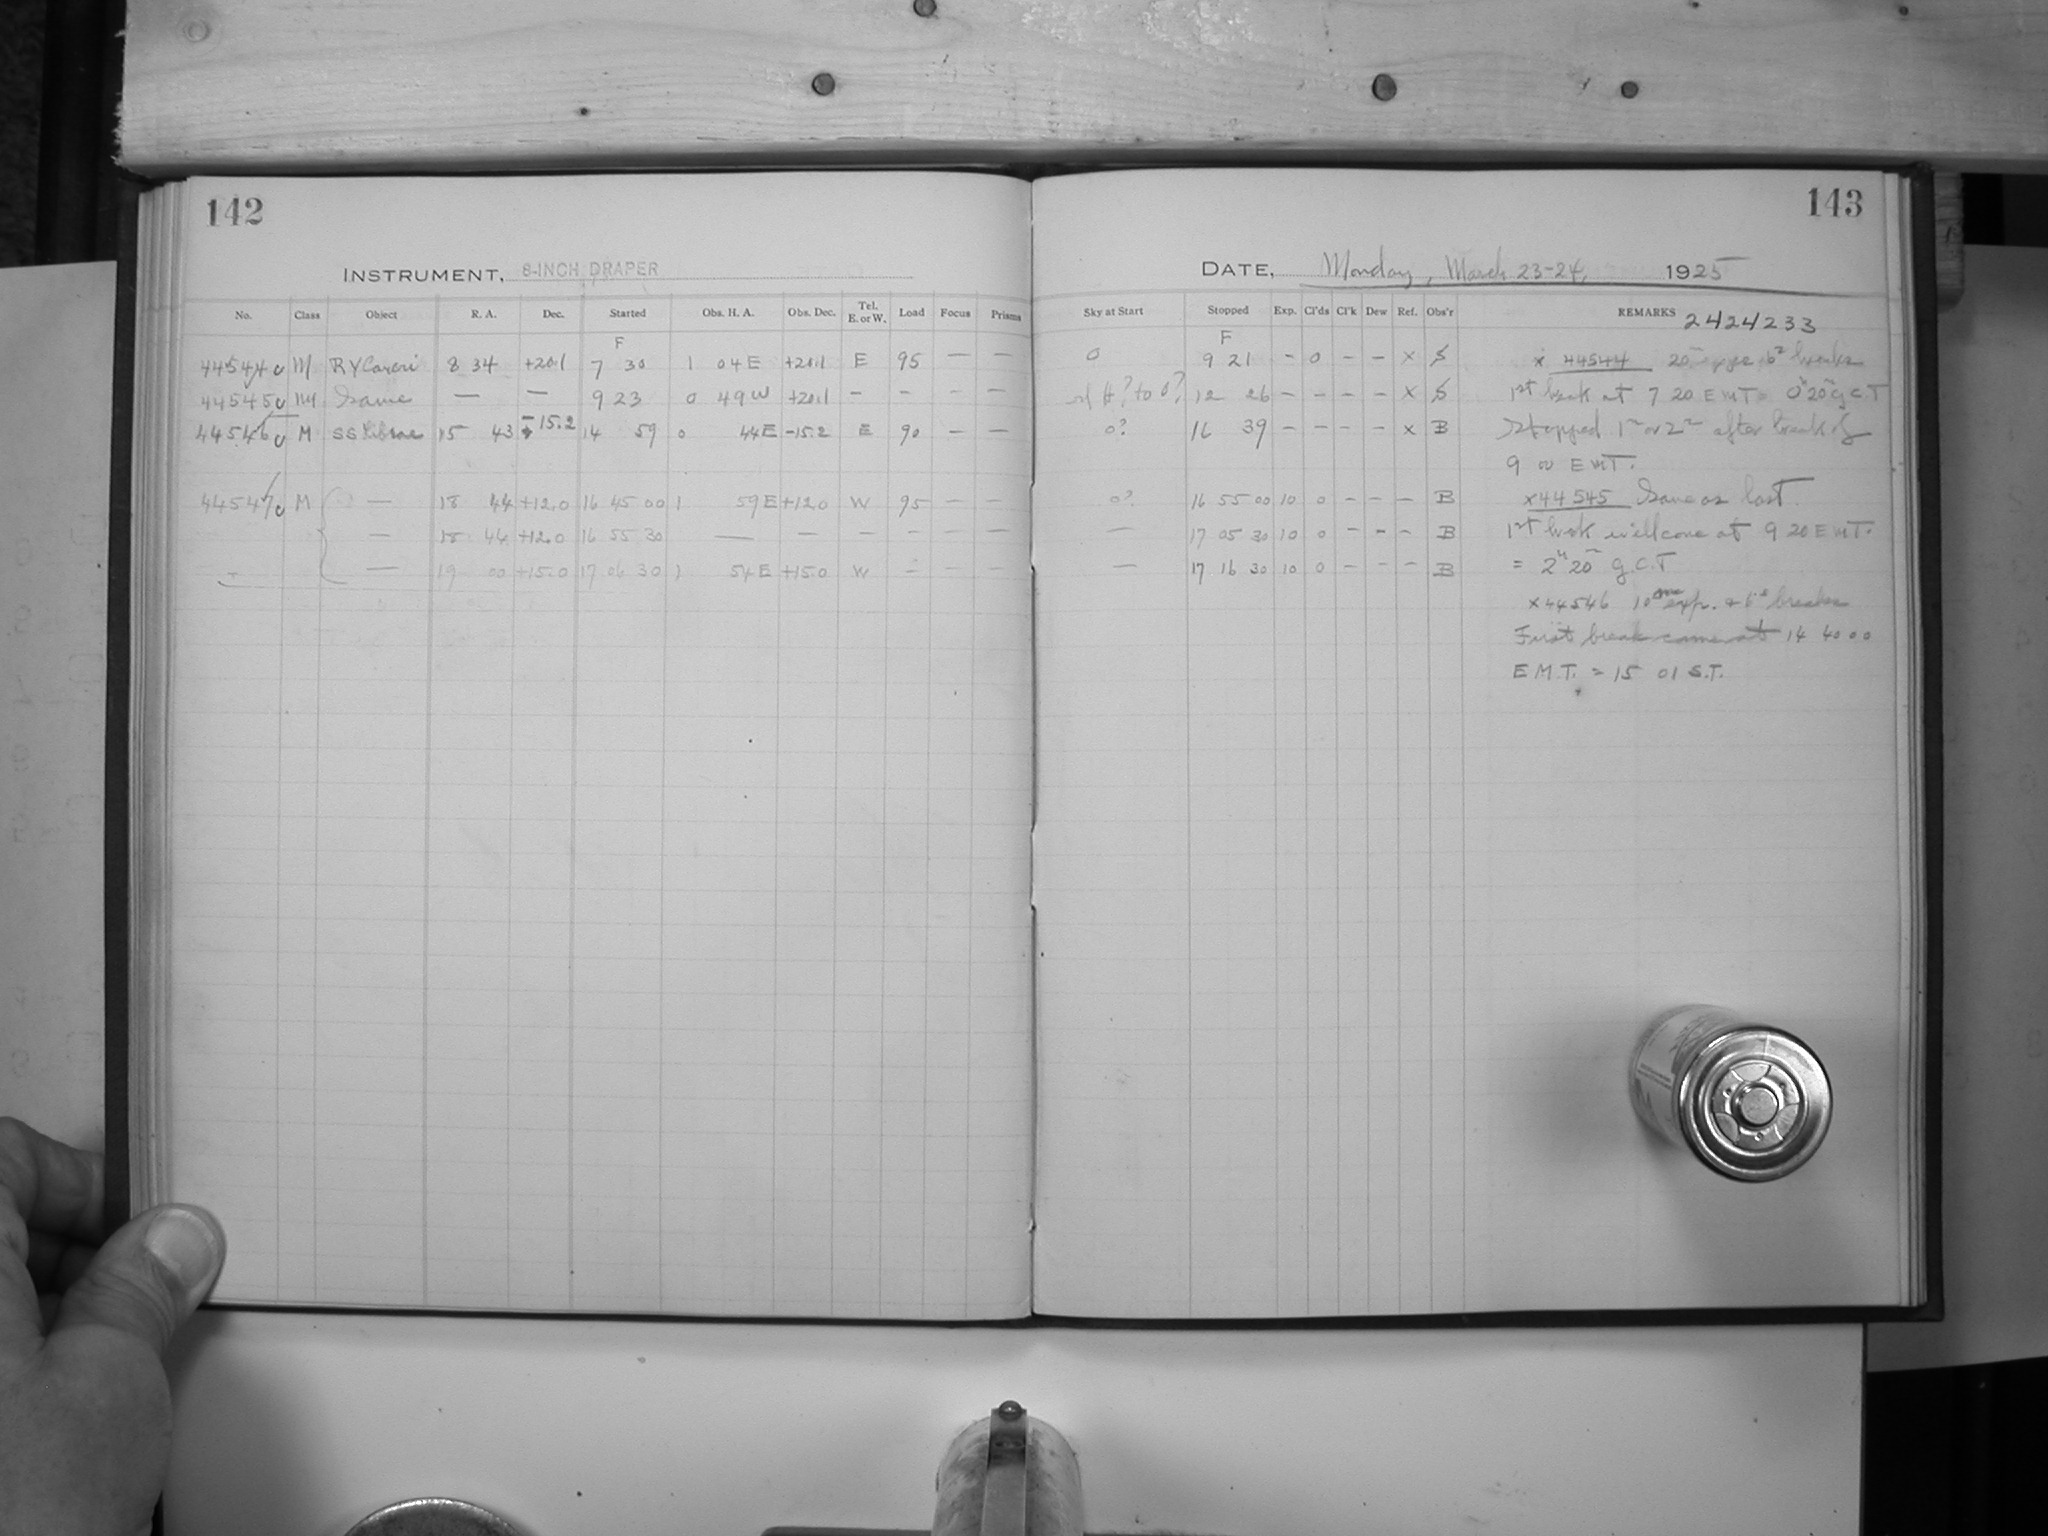 142
INSTRUMENT, 8-INCH DRAPER
No. Class Object R. A. Dec. Started Obs. H. A. Obs. Dec. Tel. E. or W. Load Focus Prisms
F
44544 M RY Cancri 8 34 +20.1 7 30 1 04 E +20.1 E 95 — —
44545 M Same — — 9 23 0 49 W +20.1 — — — —
44546 M SS Librae 15 43 -15.2 14 59 0 44 E -15.2 E 90 — —
44547 M — 18 44 +12.0 16 45 00 1 59 E +12.0 W 95 — —
— 18 46 +12.0 16 55 30 — — — — — —
— 19 00 +15.0 17 06 30 1 54 E +15.0 W — — —
143
DATE, Monday, March 23-24, 1925
Sky at Start Stopped Exp. Cl'ds Cl'k Dew Ref. Obs'r REMARKS 2424233
F
0 9 21 — 0 — — x S x 44544 20 breaks
12 26 — — — — x S 1st break at 7 20 E M T = 0h 20m G.C.T
0? 16 39 — — — — x B Stopped 1m or 2m after break of
9 00 E M T.
0? 16 55 00 10 0 — — — B x 44545 Same as last.
— 17 05 30 10 0 — — — B 1st break will come at 9 20 E M T.
— 17 16 30 10 0 — — — B = 2h 20m G.C.T
x 44546 10 exp. & breaks
First break came at 14 40 00
E.M.T. = 15 01 S.T.